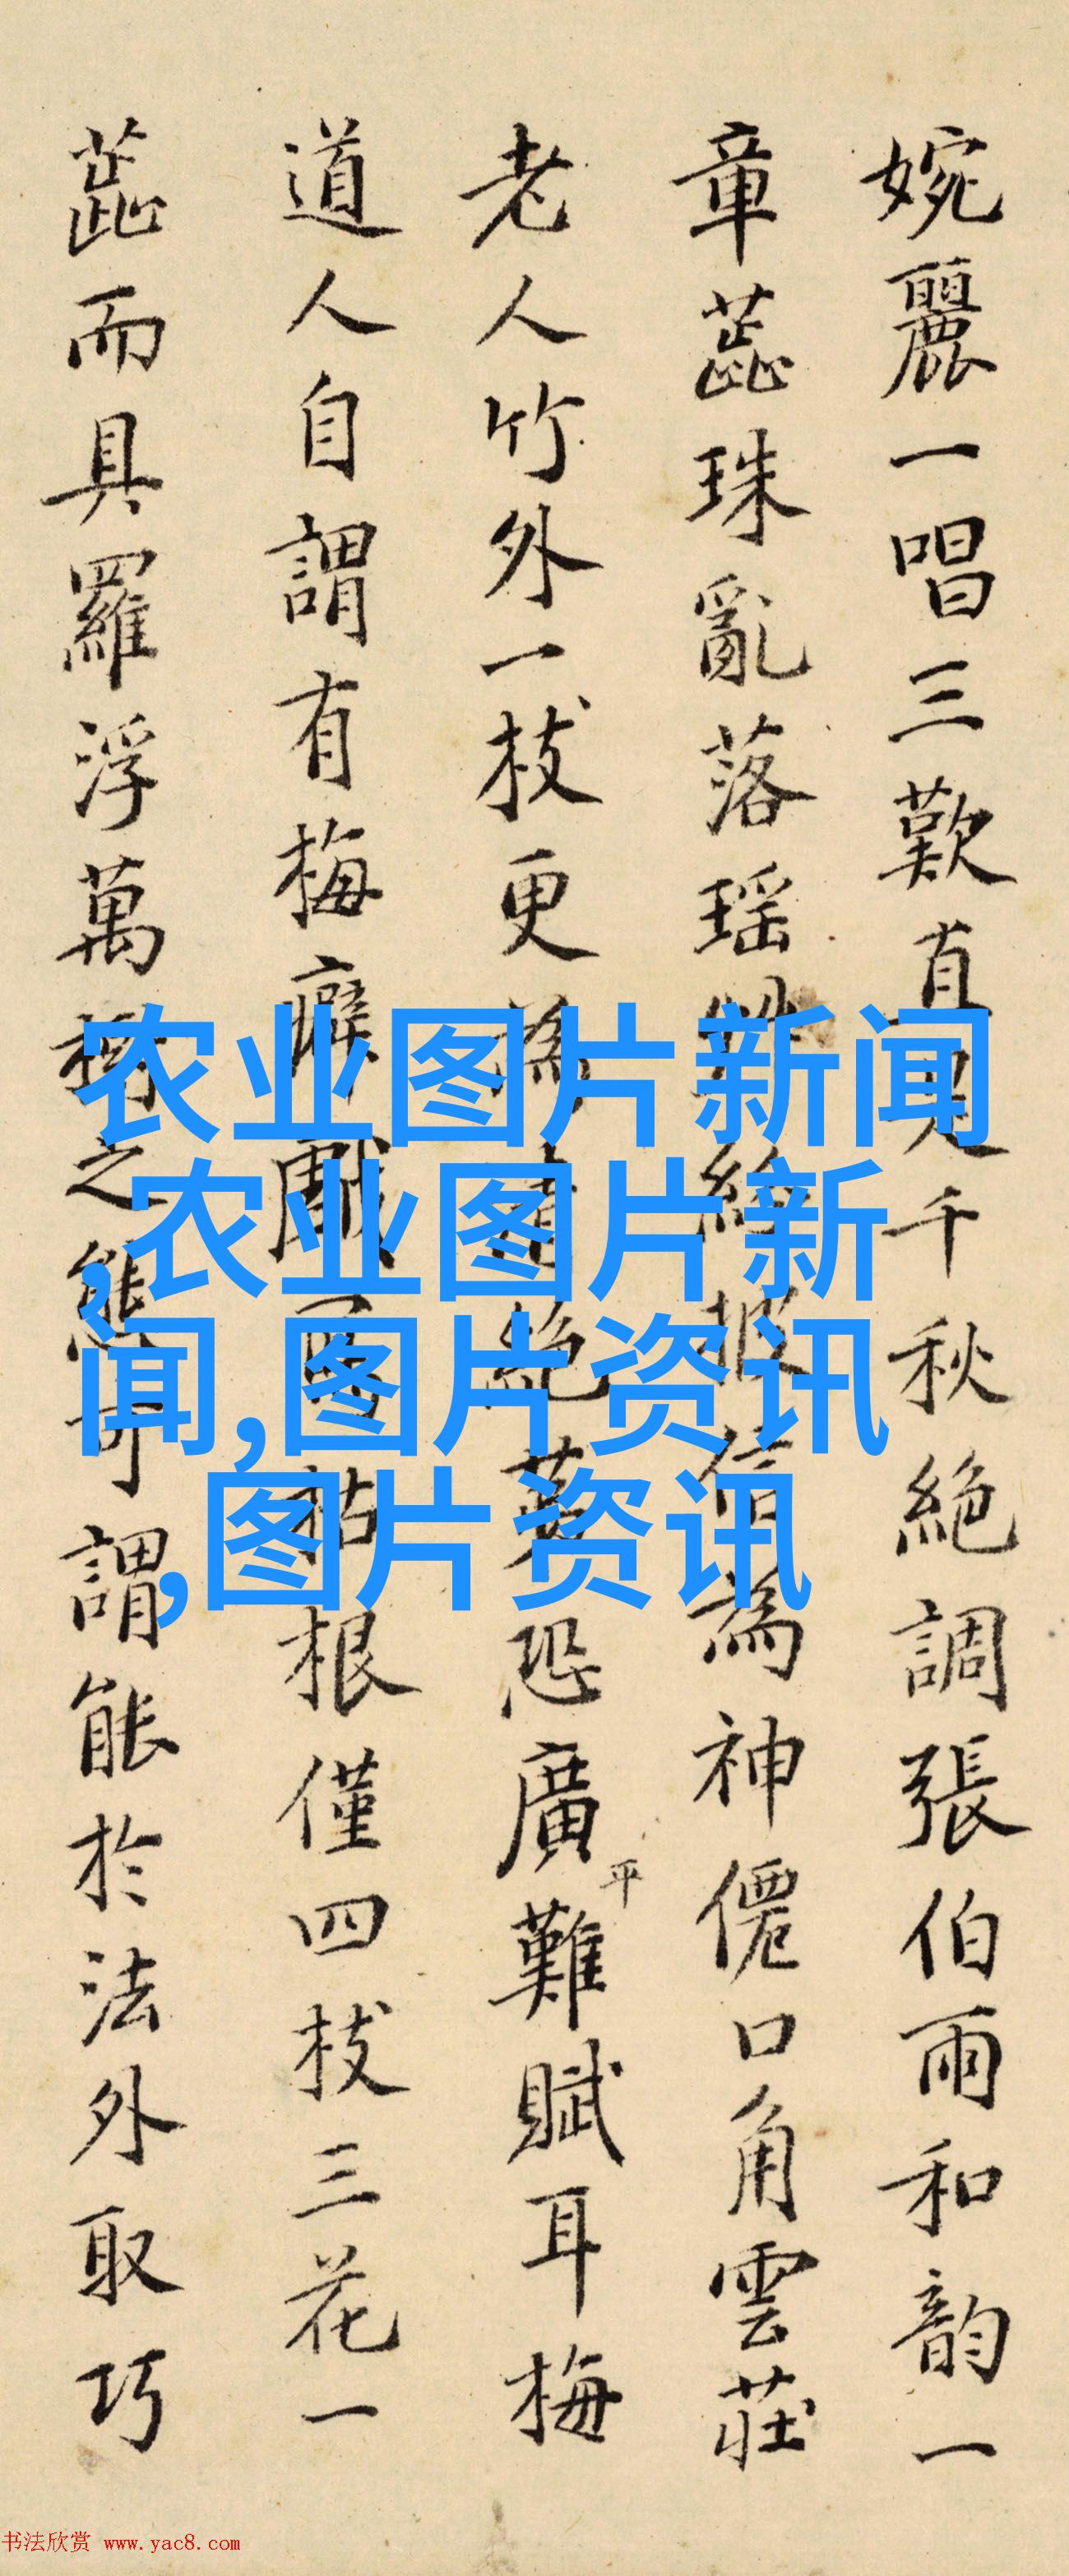 婉麗一唱三歎直見千秋絕調張伯雨和韵一
章蕋珠亂落瑶
為神僊口角雲莊
老人竹外一枝更為
恐廣平難賦耳梅
道人自謂有梅癖戲
根僅四枝三花一
蕋而具羅浮萬樹之態可謂能於法外取巧
农业图片新闻
,农业图片新
闻,图片资讯
,图片资讯
书法欣赏 www.yac8.com